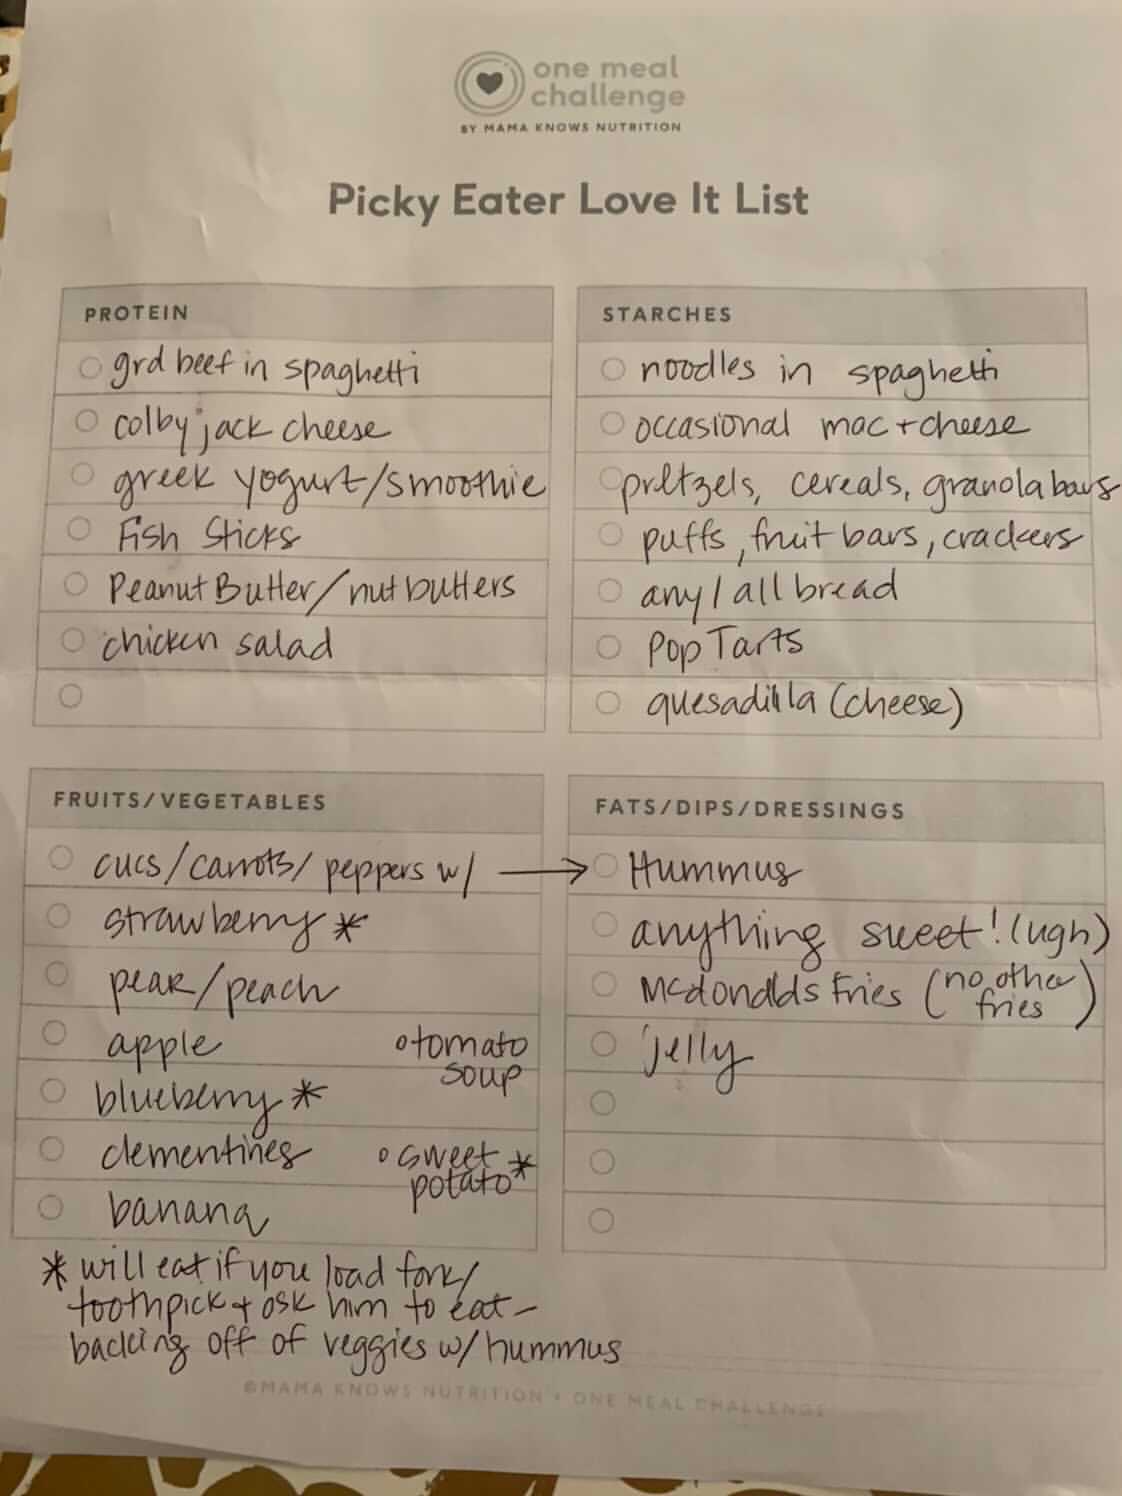 one meal
challenge
BY MAMA KNOWS NUTRITION
Picky Eater Love It List
PROTEIN
grd beef in spaghetti
colby jack cheese
greek yogurt/smoothie
Fish Sticks
Peanut Butter/nut butters
chicken salad
STARCHES
noodles in spaghetti
occasional mac + cheese
pretzels, cereals, granola bars
puffs, fruit bars, crackers
any/all bread
Pop Tarts
quesadilla (cheese)
FRUITS/VEGETABLES
cucs/carrots/peppers w/ →
strawberry *
pear/peach
apple
blueberry *
clementines
banana
tomato
soup
sweet
potato *
* will eat if you load fork/
toothpick + ask him to eat-
backing off of veggies w/ hummus
FATS/DIPS/DRESSINGS
Hummus
anything sweet! (ugh)
Mcdondlds Fries (no other
fries)
jelly
©MAMA KNOWS NUTRITION • ONE MEAL CHALLENGE